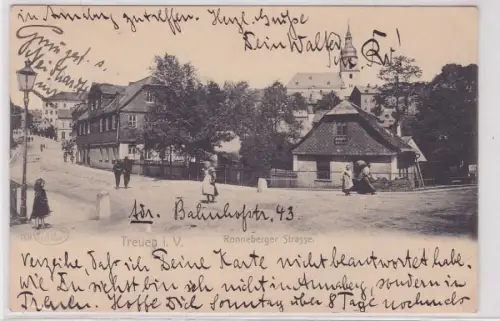 in Annaberg zutreffen. Herzl. Grüße
Dein Walter R!
Gruß a.
Adr. Bahnhofstr. 43
Treuen i. V. Ronneberger Strasse.
Verzeihe, daß ich Deine Karte nicht beantwortet habe.
Wie Du siehst bin ich nicht in Annaberg, sondern in
Treuen. Hoffe Dich Sonntag über 8 Tage nochmals